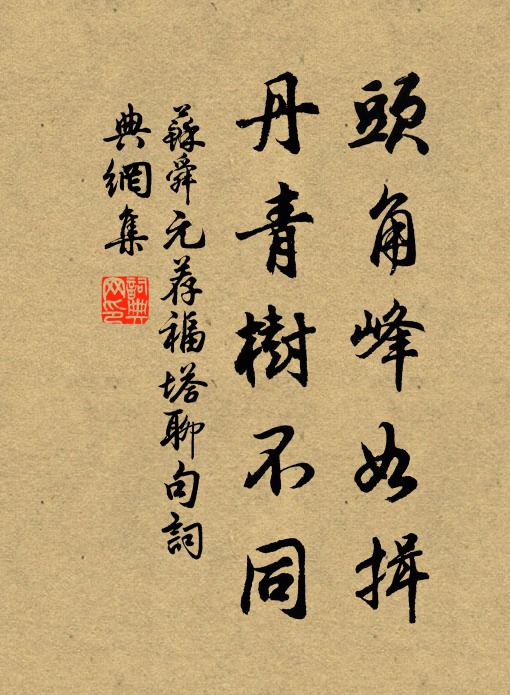 頭角峰如揖
丹青樹不同
蘇舜元荐福塔聊句詞
典網集
詞典網印